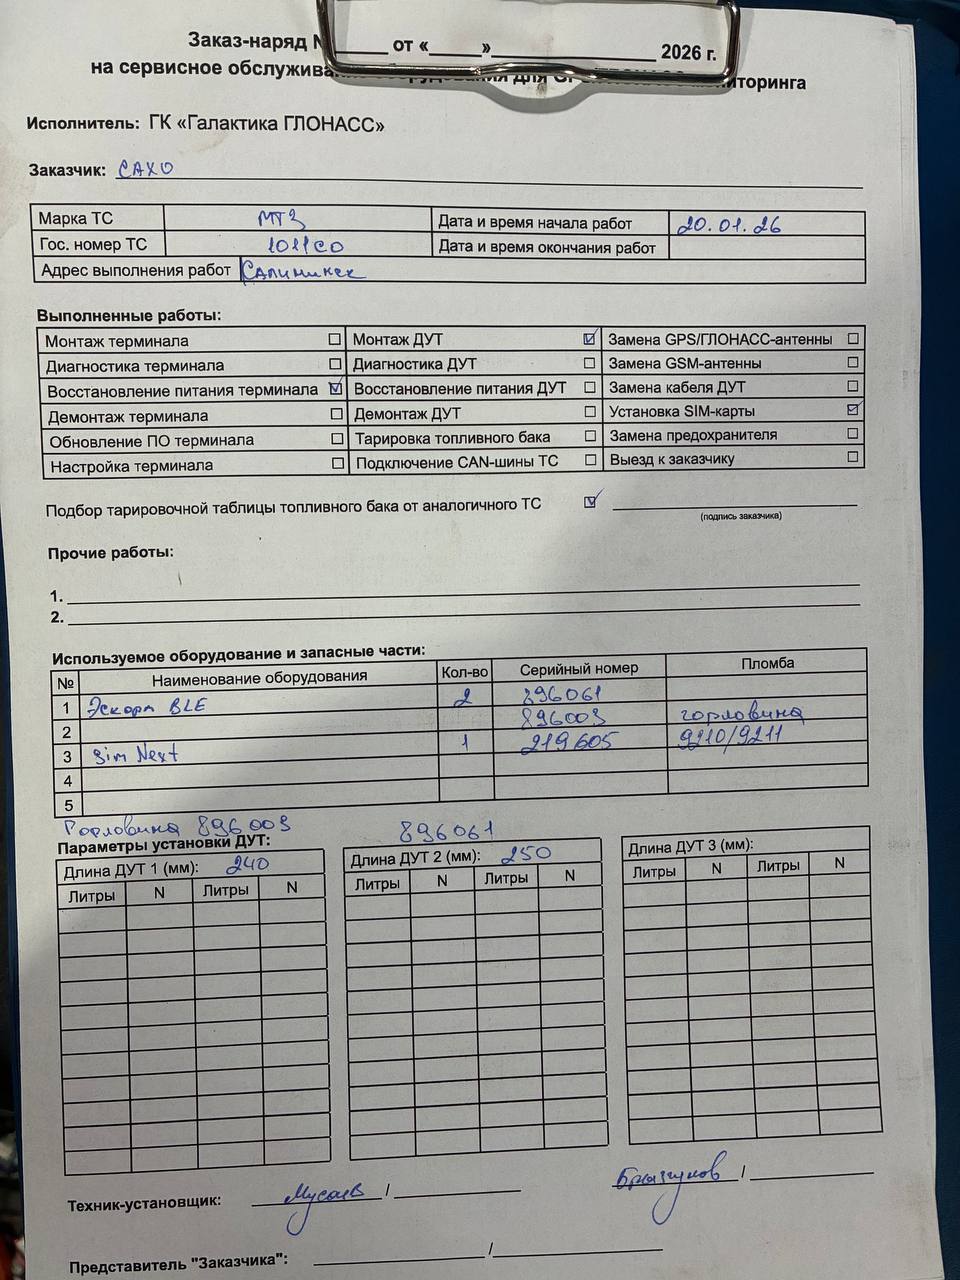 Заказ-наряд №_____ от «_____» _______________ 2026 г.
на сервисное обслуживание оборудования для мониторинга
Исполнитель: ГК «Галактика ГЛОНАСС»
Заказчик: САХО
Марка ТС МТЗ Дата и время начала работ 20.01.26
Гос. номер ТС 1011СО Дата и время окончания работ
Адрес выполнения работ
Выполненные работы:
Монтаж терминала ☐ Монтаж ДУТ ☑ Замена GPS/ГЛОНАСС-антенны ☐
Диагностика терминала ☐ Диагностика ДУТ ☐ Замена GSM-антенны ☐
Восстановление питания терминала ☑ Восстановление питания ДУТ ☐ Замена кабеля ДУТ ☐
Демонтаж терминала ☐ Демонтаж ДУТ ☐ Установка SIM-карты ☑
Обновление ПО терминала ☐ Тарировка топливного бака ☐ Замена предохранителя ☐
Настройка терминала ☐ Подключение CAN-шины ТС ☐ Выезд к заказчику ☐
Подбор тарировочной таблицы топливного бака от аналогичного ТС ☑
(подпись заказчика)
Прочие работы:
1.
2.
Используемое оборудование и запасные части:
№ Наименование оборудования Кол-во Серийный номер Пломба
1 Эскорт BLE 2 896061
2 896003 горловина
3 Sim Next 1 219605 9210/9211
4
5
Горловина 896003 896061
Параметры установки ДУТ:
Длина ДУТ 1 (мм): 240 Длина ДУТ 2 (мм): 250 Длина ДУТ 3 (мм):
Литры N Литры N Литры N Литры N Литры N Литры N
Техник-установщик: Мусаев /
/
Представитель "Заказчика": /